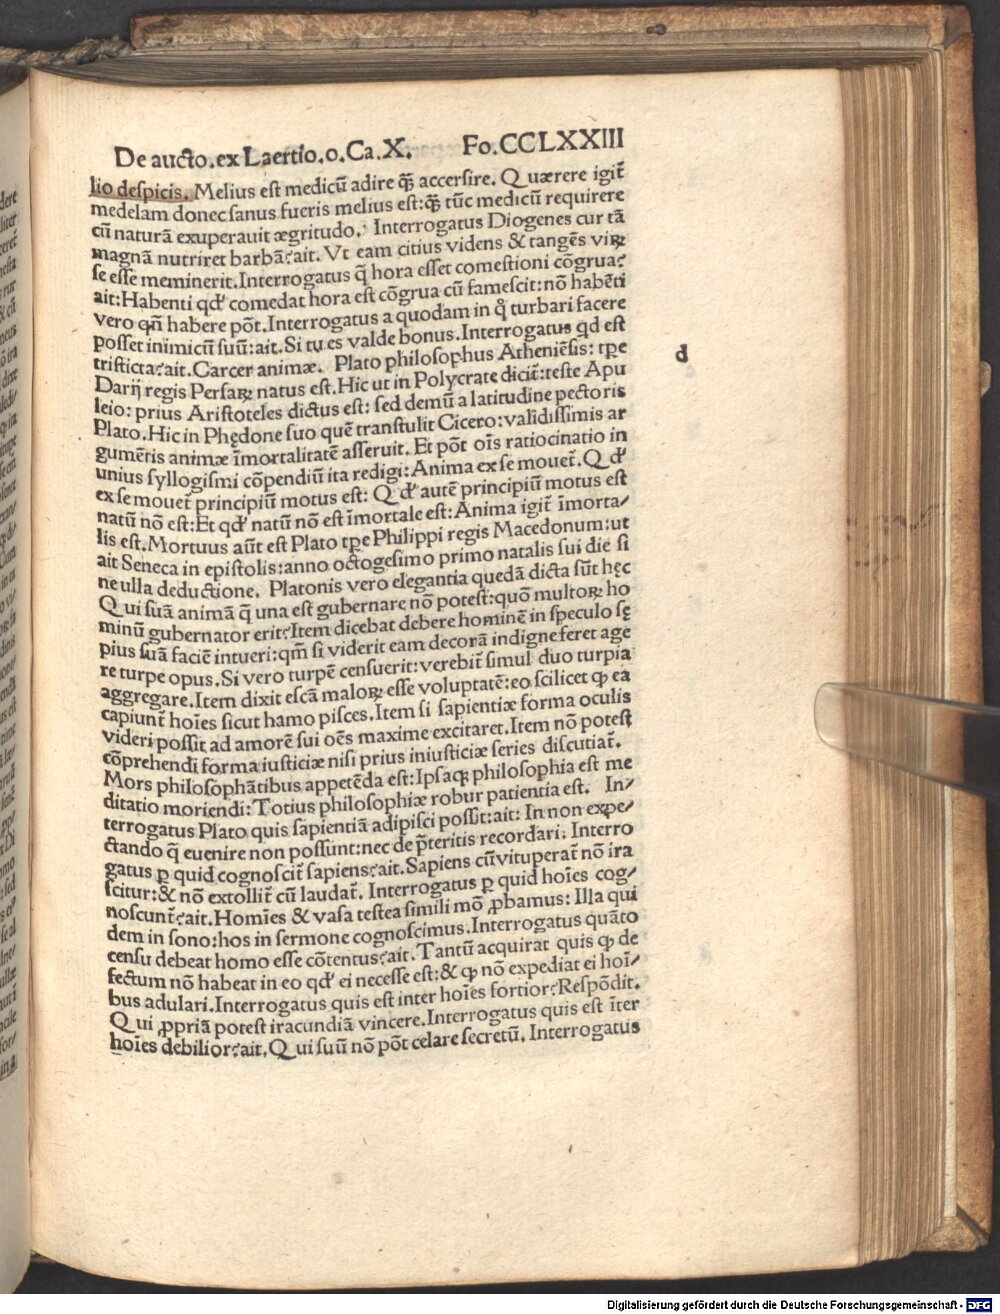 De aucto.ex Laertio.o.Ca.X. Fo.CCLXXIII
lio despicis. Melius est medicū adire q̃ȝ accersire. Quærere igit̃
medelam donec sanus fueris melius est:q̃ȝ tūc medicū requirere
cū naturā exuperauit ægritudo. Interrogatus Diogenes cur tā
magnā nutriret barbā?ait. Vt eam citius videns & tangēs viꝝ
se esse meminerit.Interrogatus q̃ hora esset comestioni cōgrua?
ait:Habenti qđ comedat hora est cōgrua cū famescit:nō habēti
vero qñ habere põt.Interrogatus a quodam in q̊ turbari facere
posset inimicū suū:ait.Si tu es valde bonus.Interrogatus qd est
tristicia?ait.Carcer animæ. Plato philosophus Atheniēsis:tp̄e
d
Darij regis Persaꝝ natus est.Hic ut in Polycrate dicit̃:teste Apu
leio:prius Aristoteles dictus est:sed demū a latitudine pectoris
Plato.Hic in Phędone suo quē transtulit Cicero:validissimis ar
gumētis animæ īmortalitatē asseruit.Et põt oīs ratiocinatio in
unius syllogismi cōpendiū ita redigi:Anima ex se mouet̃.Qđ
ex se mouet̃ principiū motus est: Qđ autē principiū motus est
natū nō est:Et qđ natū nō est īmortale est:Anima igit̃ īmorta/
lis est.Mortuus aūt est Plato tp̄e Philippi regis Macedonum:ut
ait Seneca in epistolis:anno octogesimo primo natalis sui die si
ne ulla deductione. Platonis vero elegantia quedā dicta sūt hęc
Qui suā animā q̃ una est gubernare nō potest:quō multoꝝ ho
minū gubernator erit?Item dicebat debere hominē in speculo sę
pius suā faciē intueri:qm̃ si viderit eam decorā indigne feret age
re turpe opus.Si vero turpē censuerit:verebit̃ simul duo turpia
aggregare.Item dixit escā maloꝝ esse voluptatē:eo scilicet ꝙ ea
capiunt̃ hoīes sicut hamo pisces.Item si sapientiæ forma oculis
videri possit ad amorē sui oēs maxime excitaret.Item nō potest
cōprehendi forma iusticiæ nisi prius iniusticiæ series discutiat̃.
Mors philosophātibus appetēda est:Ipsaqȝ philosophia est me
ditatio moriendi:Totius philosophiæ robur patientia est. In/
terrogatus Plato quis sapientiā adipisci possit:ait: In non expe/
ctando q̃ euenire non possunt:nec de p̃teritis recordari. Interro
gatus ꝑ quid cognoscit̃ sapiens?ait.Sapiens cū vituperat̃ nō ira
scitur:& nō extollit̃ cū laudat̃. Interrogatus ꝑ quid hoīes cog/
noscunt̃?ait.Homīes & vasa testea simili mō ꝓbamus: Illa qui
dem in sono:hos in sermone cognoscimus.Interrogatus quāto
censu debeat homo esse cōtentus?ait.Tantū acquirat quis ꝙ de
fectum nō habeat in eo qđ ei necesse est:& ꝙ nō expediat ei hoī/
bus adulari.Interrogatus quis est inter hoīes fortior?Respōdit.
Qui ꝓpriā potest iracundiā vincere.Interrogatus quis est īter
hoīes debilior?ait.Qui suū nō põt celare secretū. Interrogatus
Digitalisierung gefördert durch die Deutsche Forschungsgemeinschaft - DFG